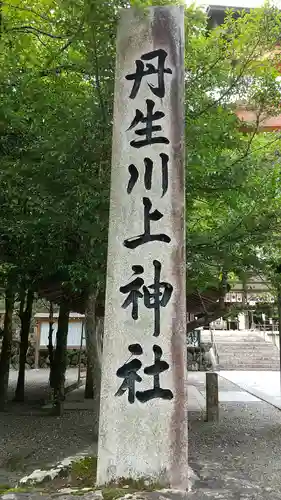 丹生川上神社